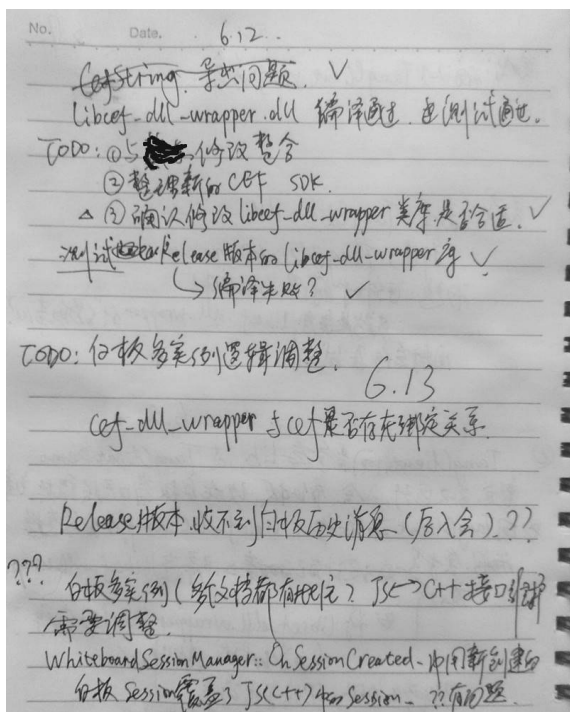 No. Date. 6.12.
CefString. 导出问题. ✓
libcef_dll_wrapper.dll 编译通过. 且测试通过.
TODO: ① 与 修改整合
② 整理新的 CEF SDK.
△ ③ 确认修改 libcef_dll_wrapper 类库是否合适. ✓
测试 Release版本的 libcef_dll_wrapper 库 ✓
↳ 编译失败? ✓
TODO: 白板多实例逻辑调整.
6.13
cef_dll_wrapper 与 cef 是否存在绑定关系.
Release版本.收不到白板历史消息 (后入会). ??
??? 白板多实例 (多文档都有 ) JS→C++ 接口
需要调整.
WhiteboardSessionManager::OnSessionCreated. 中用新创建的
白板 Session覆盖了 JS(C++)中的 Session. ??有问题.